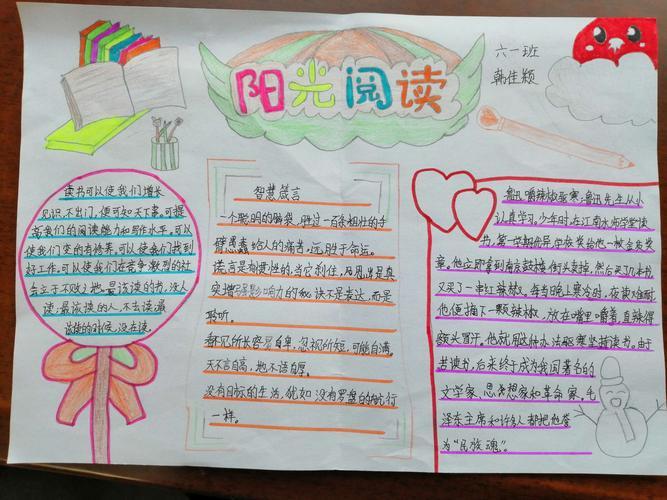 阳光阅读
六一班
韩佳颖
读书可以使我们增长
见识,不出门,便可知天下事,可提
高我们的阅读能力和写作水平,可以
使我们变的有涵养,可以使我们找到
好工作,可以使我们在竞争激烈的社
会立于不败之地。最该读的书,没人
读,最该读的人,不去读,最
该读的时候,没在读。
智慧箴言
一个聪明的脑袋,胜过一百条粗壮的手
愚蠢给人的痛苦,远胜于命运。
谎言是有惯性的,当它刹住,
实增强影响力的秘诀不是表达,而是
聆听。
看见所长容易自卑,忽视所短,可能自满。
天不言自高,地不语自厚。
没有目标的生活,犹如没有罗盘的航行
一样。
鲁迅嚼辣椒驱寒:鲁迅先生从小
认真学习。少年时,在江南水师学堂读
书,第一学期成绩优异,学校奖给他一枚金质奖
章。他立即拿到南京鼓楼街头卖掉,然后买了几本书,
又买了一串红辣椒。每当晚上寒冷时,夜读难耐,
他便摘下一颗辣椒,放在嘴里嚼着,直辣得
额头冒汗。他就用这种办法驱寒坚持读书。由于
苦读书,后来终于成为我国著名的
文学家、思想家和革命家,毛
泽东主席和许多人都把他誉
为“民族魂”。